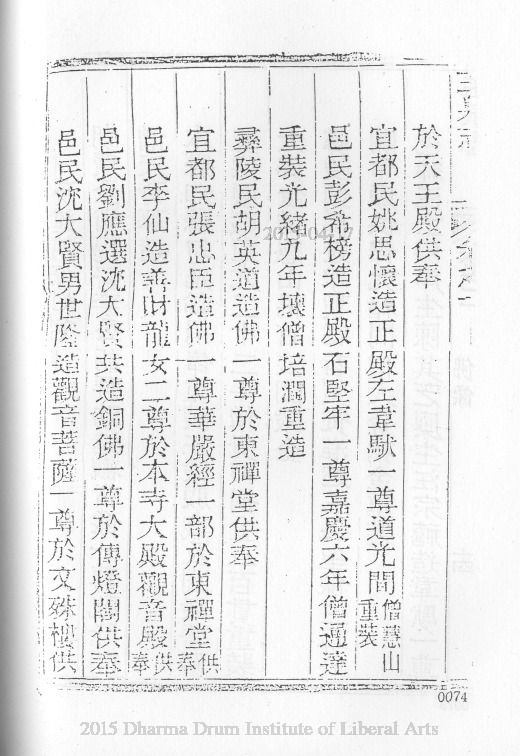 於天王殿供奉
宜都民姚思懷造正殿左韋馱一尊道光間僧慧山重裝
邑民彭希榜造正殿石堅牢一尊嘉慶六年僧通達
重裝光緒九年壞僧培潤重造
彞陵民胡英道造佛一尊於東禪堂供奉
宜都民張忠臣造佛一尊華嚴經一部於東禪堂供奉
邑民李仙造善財龍女二尊於本寺大殿觀音殿供奉
邑民劉應選沈大賢共造銅佛一尊於傳燈閣供奉
邑民沈大賢男世隆造觀音菩薩一尊於文殊樓供
0074
2015 Dharma Drum Institute of Liberal Arts